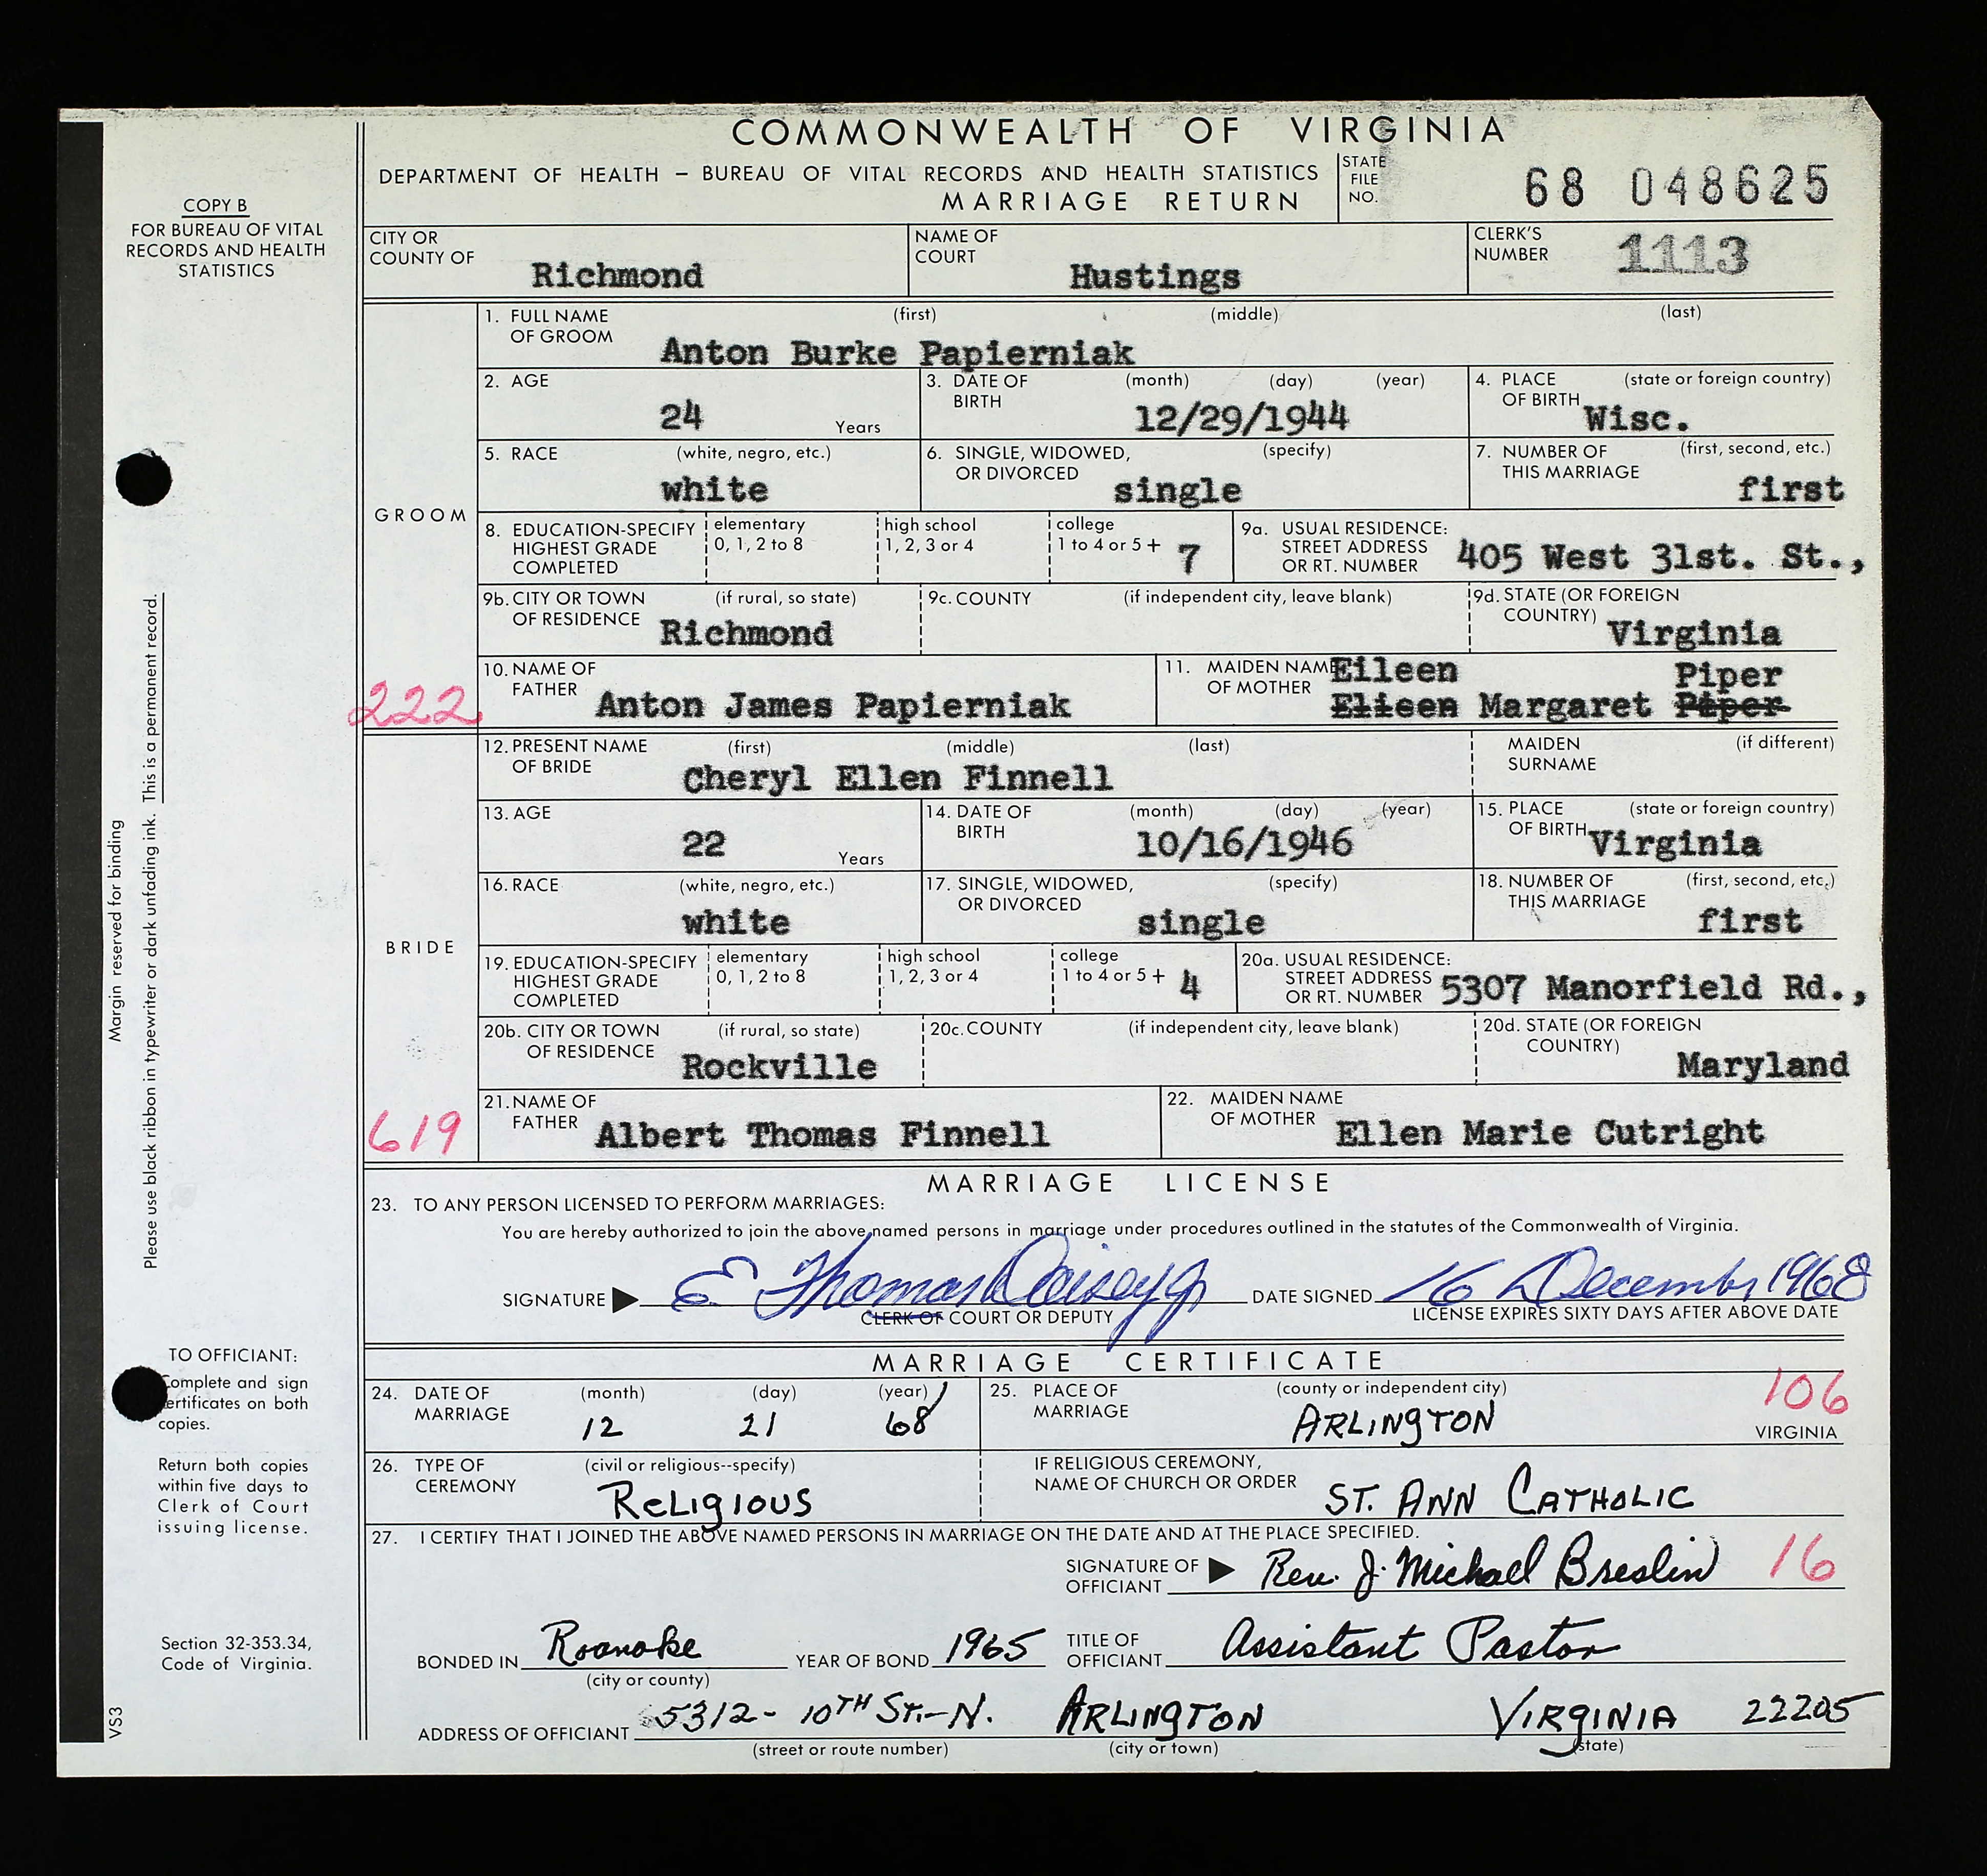 COMMONWEALTH OF VIRGINIA
DEPARTMENT OF HEALTH – BUREAU OF VITAL RECORDS AND HEALTH STATISTICS
MARRIAGE RETURN
STATE FILE NO. 68 048625
COPY B
FOR BUREAU OF VITAL
RECORDS AND HEALTH
STATISTICS
CITY OR COUNTY OF Richmond
NAME OF COURT Hustings
CLERK'S NUMBER 1113
GROOM
1. FULL NAME OF GROOM (first) (middle) (last)
Anton Burke Papierniak
2. AGE 24 Years
3. DATE OF BIRTH (month) (day) (year) 12/29/1944
4. PLACE OF BIRTH (state or foreign country) Wisc.
5. RACE (white, negro, etc.) white
6. SINGLE, WIDOWED, OR DIVORCED (specify) single
7. NUMBER OF THIS MARRIAGE (first, second, etc.) first
8. EDUCATION-SPECIFY HIGHEST GRADE COMPLETED
elementary 0, 1, 2 to 8
high school 1, 2, 3 or 4
college 1 to 4 or 5+ 7
9a. USUAL RESIDENCE: STREET ADDRESS OR RT. NUMBER 405 West 31st. St.,
9b. CITY OR TOWN OF RESIDENCE (if rural, so state) Richmond
9c. COUNTY (if independent city, leave blank)
9d. STATE (OR FOREIGN COUNTRY) Virginia
222
10. NAME OF FATHER Anton James Papierniak
11. MAIDEN NAME OF MOTHER Eileen Piper
Elieen Margaret Piper
BRIDE
12. PRESENT NAME OF BRIDE (first) (middle) (last)
Cheryl Ellen Finnell
MAIDEN SURNAME (if different)
13. AGE 22 Years
14. DATE OF BIRTH (month) (day) (year) 10/16/1946
15. PLACE OF BIRTH (state or foreign country) Virginia
16. RACE (white, negro, etc.) white
17. SINGLE, WIDOWED, OR DIVORCED (specify) single
18. NUMBER OF THIS MARRIAGE (first, second, etc.) first
19. EDUCATION-SPECIFY HIGHEST GRADE COMPLETED
elementary 0, 1, 2 to 8
high school 1, 2, 3 or 4
college 1 to 4 or 5+ 4
20a. USUAL RESIDENCE: STREET ADDRESS OR RT. NUMBER 5307 Manorfield Rd.,
20b. CITY OR TOWN OF RESIDENCE (if rural, so state) Rockville
20c. COUNTY (if independent city, leave blank)
20d. STATE (OR FOREIGN COUNTRY) Maryland
619
21. NAME OF FATHER Albert Thomas Finnell
22. MAIDEN NAME OF MOTHER Ellen Marie Cutright
MARRIAGE LICENSE
23. TO ANY PERSON LICENSED TO PERFORM MARRIAGES:
You are hereby authorized to join the above named persons in marriage under procedures outlined in the statutes of the Commonwealth of Virginia.
SIGNATURE E Thomas
CLERK OF COURT OR DEPUTY
DATE SIGNED 16 December 1968
LICENSE EXPIRES SIXTY DAYS AFTER ABOVE DATE
MARRIAGE CERTIFICATE
24. DATE OF MARRIAGE (month) (day) (year)
12 21 68
25. PLACE OF MARRIAGE (county or independent city) ARLINGTON
106
VIRGINIA
26. TYPE OF CEREMONY (civil or religious--specify) RELIGIOUS
IF RELIGIOUS CEREMONY, NAME OF CHURCH OR ORDER ST. ANN CATHOLIC
27. I CERTIFY THAT I JOINED THE ABOVE NAMED PERSONS IN MARRIAGE ON THE DATE AND AT THE PLACE SPECIFIED.
SIGNATURE OF OFFICIANT Rev. J. Michael Breslin 16
BONDED IN Roanoke (city or county)
YEAR OF BOND 1965
TITLE OF OFFICIANT Assistant Pastor
ADDRESS OF OFFICIANT 5312- 10TH ST.-N. ARLINGTON VIRGINIA 22205
(street or route number) (city or town) (state)
Margin reserved for binding
Please use black ribbon in typewriter or dark unfading ink. This is a permanent record.
TO OFFICIANT:
Complete and sign
ertificates on both
copies.
Return both copies
within five days to
Clerk of Court
issuing license.
Section 32-353.34,
Code of Virginia.
VS3